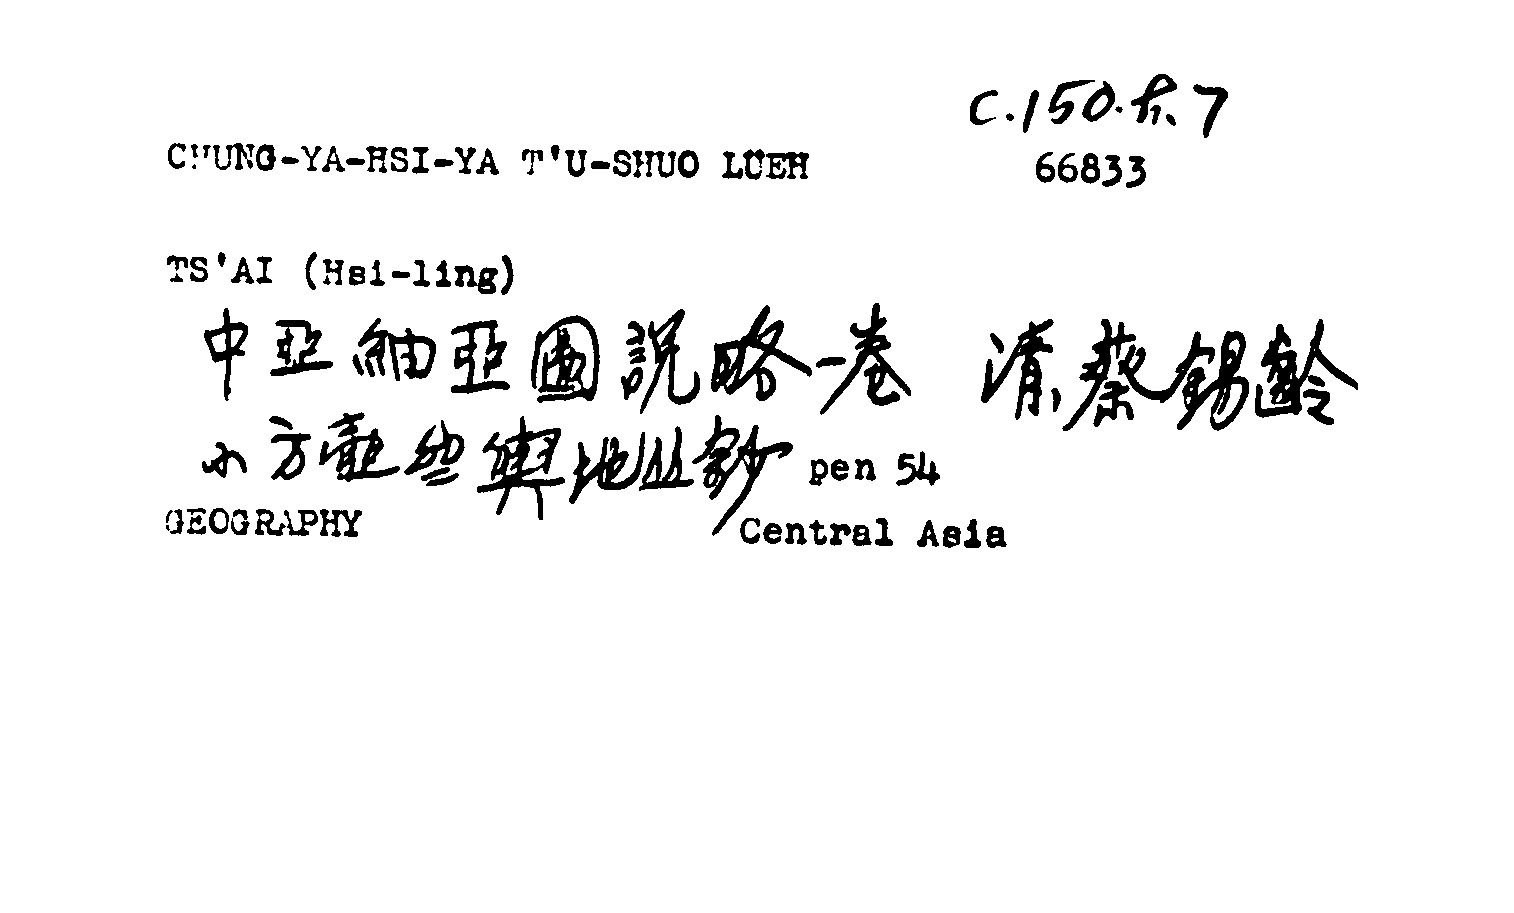 C.150. 7
CHUNG-YA-HSI-YA T'U-SHUO LÜEH 66833
TS'AI (Hsi-ling)
中亞細亞圖說略一卷 清蔡錫齡
小方壺齋輿地叢鈔 pen 54
GEOGRAPHY Central Asia